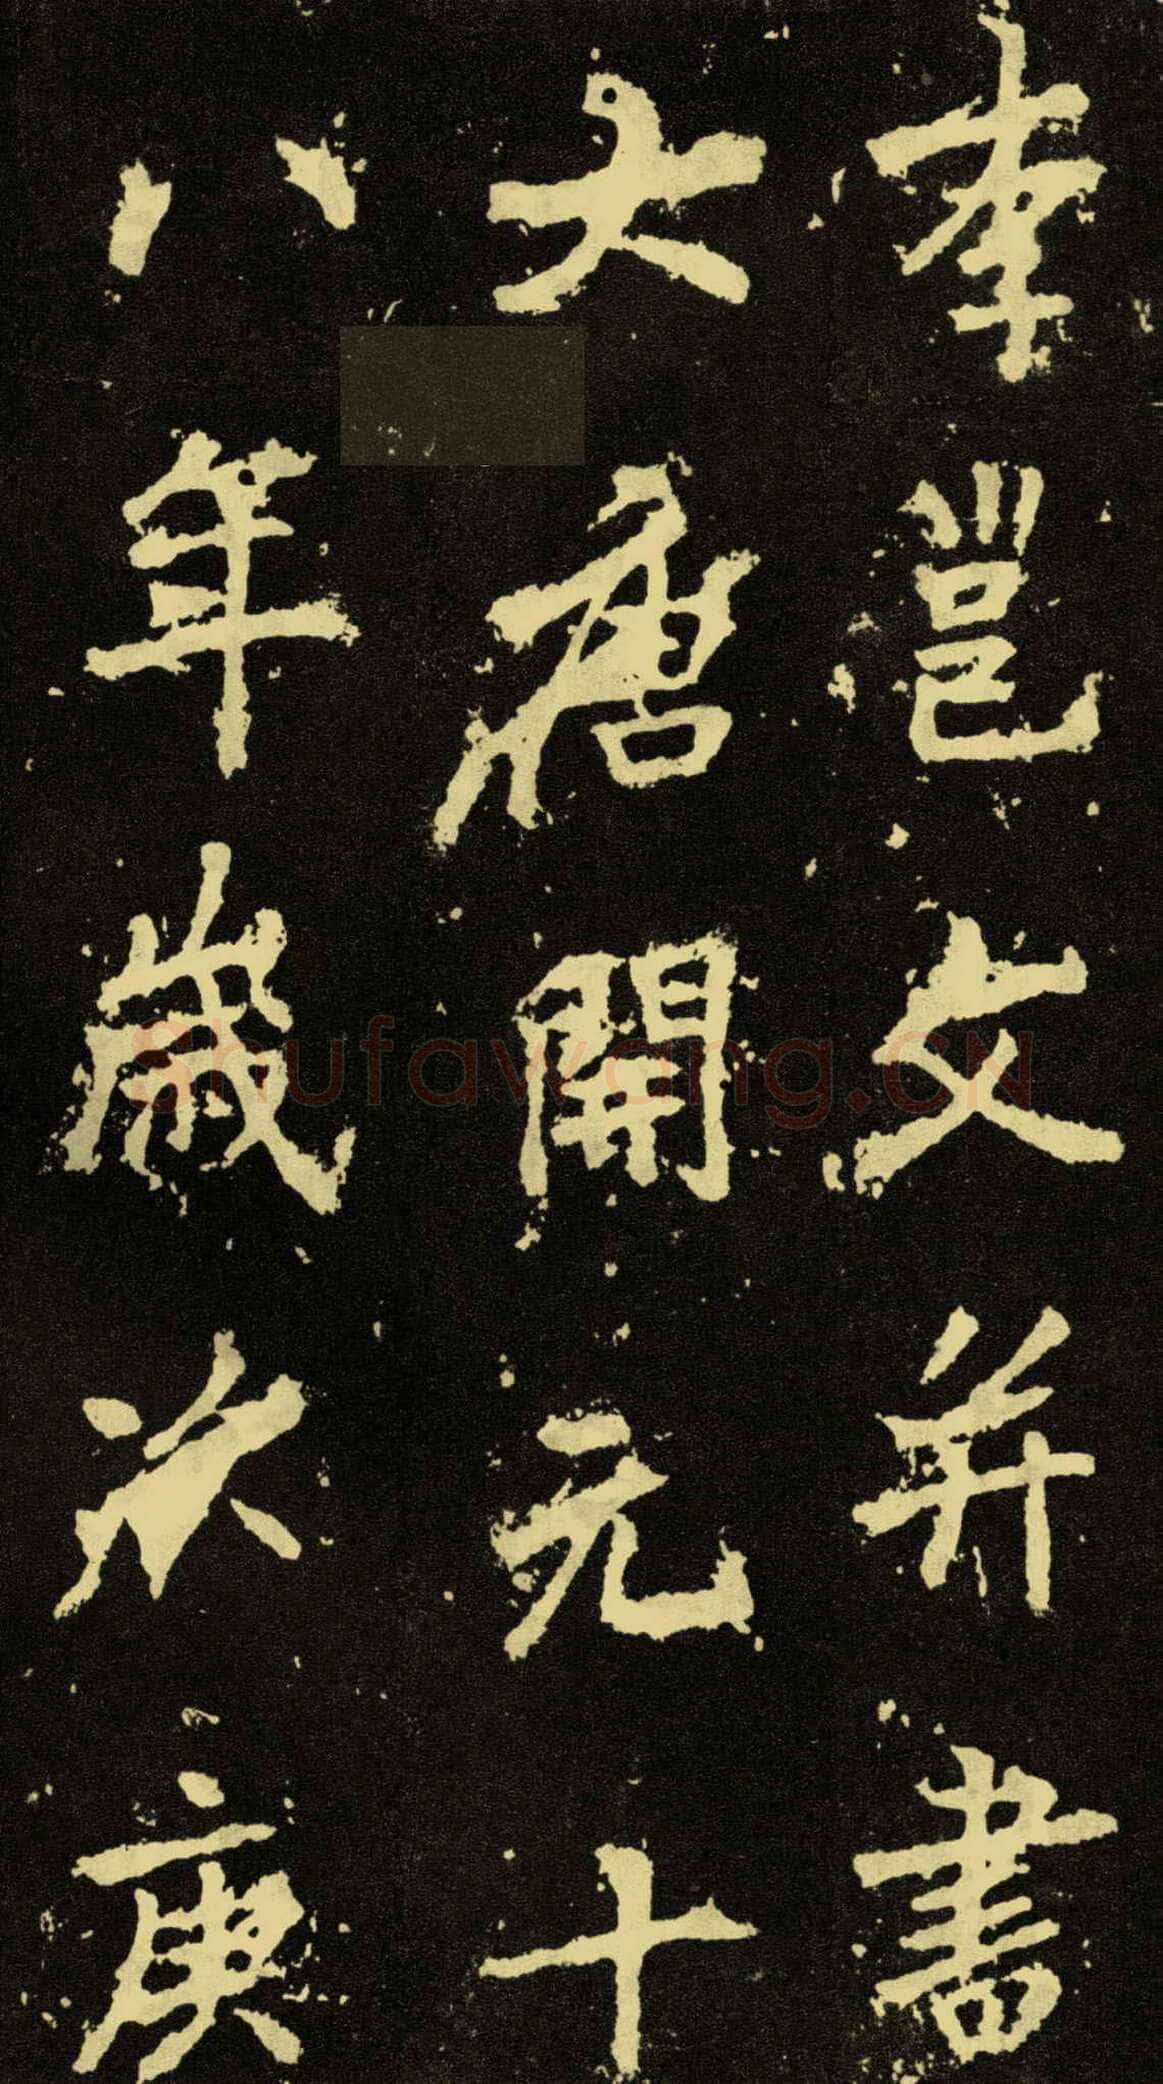 李邕文并書
大唐開元十
八年歲次庚
Shufawang.CN